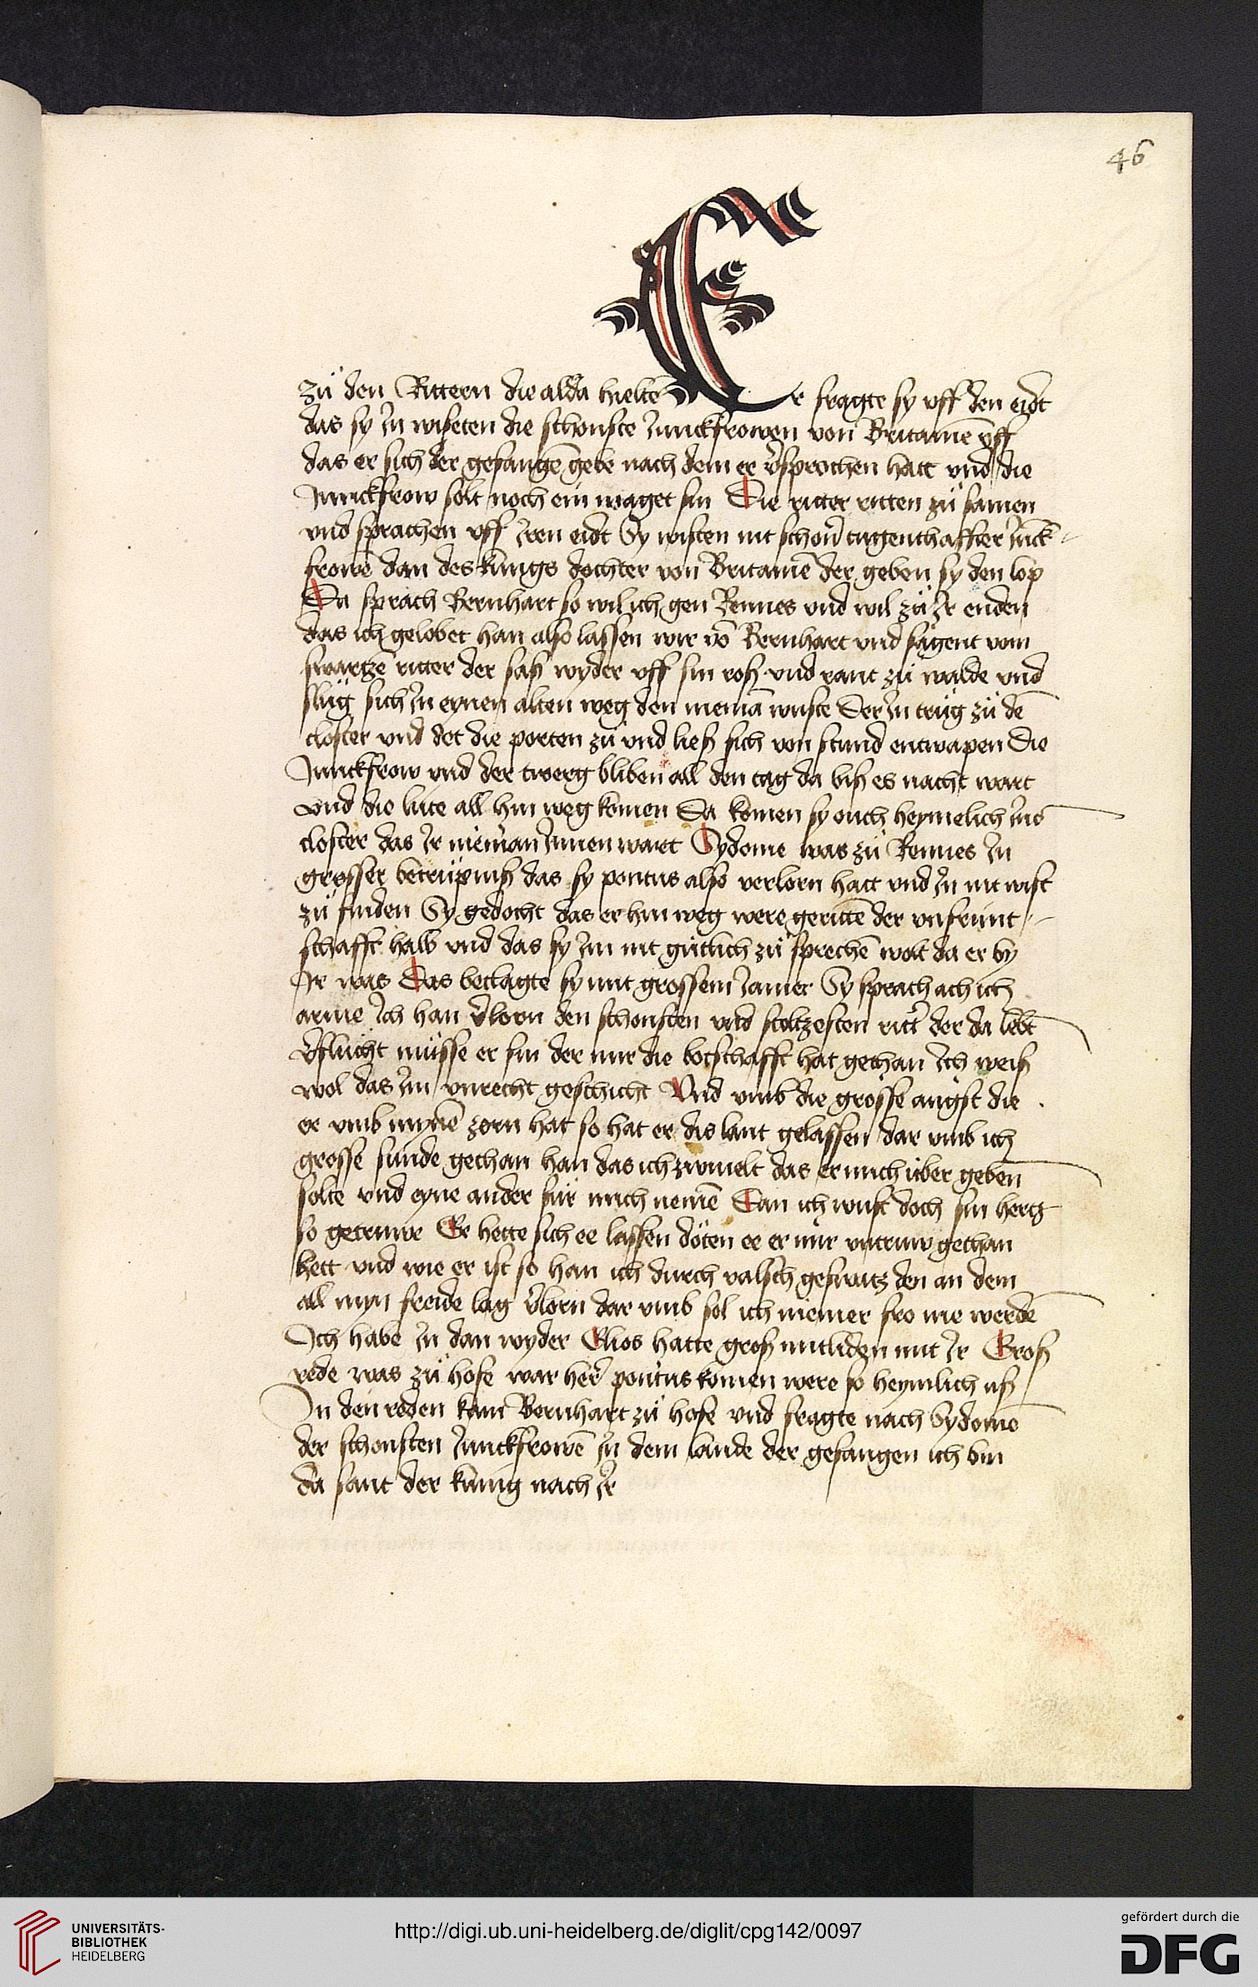 46
zů den Rittern die alda hieltē Er fragte sy vff den eidt
das sy Jn wiseten die schonste Junckfrowen von Britanīe vff
das er sich der gefangē gebe nach dem er v̉sprochen hatt vnd die
Junckfrow solt noch ein maget sin Die ritter ritten zů samen
vnd sprachen vff Jren eidt Sy wisten nit schoñ tugenthaffter Junck=
frowē dan des kunigs dochter von Britanīe der geben sy den lop
Da sprach Bernhart so wil ich gen Rennes vnd wil zů Jr enden
das ich gelobet han also lassen wir vō Bernhart vnd sagent vom
swartzē ritter der saß wyder vff sin roß vnd rant zů walde vnd
slůg sich Jn eynen alten weg den niemā wuste Der Jn trůg zů dē
closter vnd det die porten zů vnd ließ sich von stund entwapen Die
Junckfrow vnd der twerg bliben all den tag da biß es nacht wart
vnd die lute all hin weg komen Da komen sy ouch heymelich Jns
closter das Jr nieman Jnnen wart Sydonie was zů Rennes Jn
grosser betrüpniß das sy pontus also verlorn hatt vnd Jn nit wist
zů finden Sy gedocht das er hin weg were gerittē der vnfrunt=
schafft halb vnd das sy Jm nit gütlich zů sprechē wolt da er by
Jr was Das beclagte sy mit grossem Jamer Sy sprach ach ich
arme Jch han v̉lorn den schonsten vnd stoltzesten ritt̉ der da lebt
V̉flucht müsse er sin der mir die botschafft hat gethan Jch weiß
wol das Jm vnrecht geschicht Vnd vmb die grosse angst die
er vmb mynē zorn hat so hat er dis lant gelassen dar vmb ich
grosse sunde gethan han das ich zwiuelt das er mich uber geben
solte vnd eyne ander für mich nemē Dan ich wust doch sin hertz
so getruwe Er hette sich ee lassen döten ee er mir vntruw gethan
hett vnd wie er ist so han ich durch valsch geswatz den an dem
all myn freide lag v̉lorn dar vmb sol ich niemer fro me werdē
Jch habe Jn dan wyder Elios hatte groß mitliden mit Jr Groß
rede was zů hofe war her̉ pontus komen were so heymlich uß
Jn den reden kam Bernhart zů hofe vnd fragte nach Sydonie
der schonsten Junckfrowē Jn dem lande der gefangen ich bin
da sant der kunig nach Jr
UNIVERSITÄTS-
BIBLIOTHEK
HEIDELBERG
http://digi.ub.uni-heidelberg.de/diglit/cpg142/0097
gefördert durch die
DFG